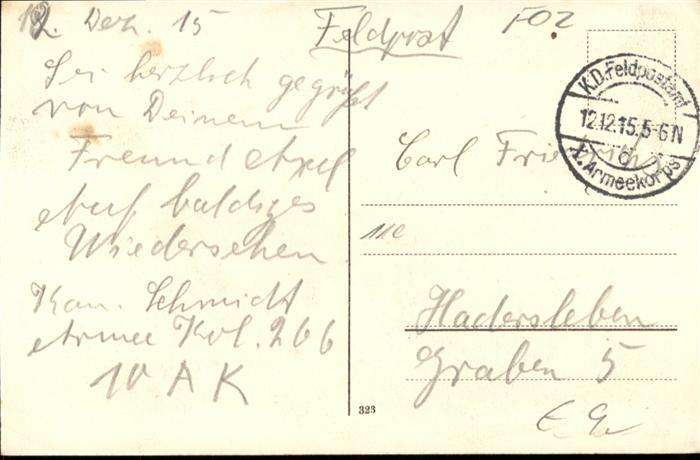 12. Dez. 15
Feldpost
Sei herzlich gegrüßt
von Deinem
Freund Axel
Auf baldiges
Wiedersehen
Kan. Schmidt
Armee Kol. 266
10 A K
K.D.Feldpostamt
12.12.15.5-6N
d
X. Armeekorps
Carl
Hadersleben
Graben 5
323